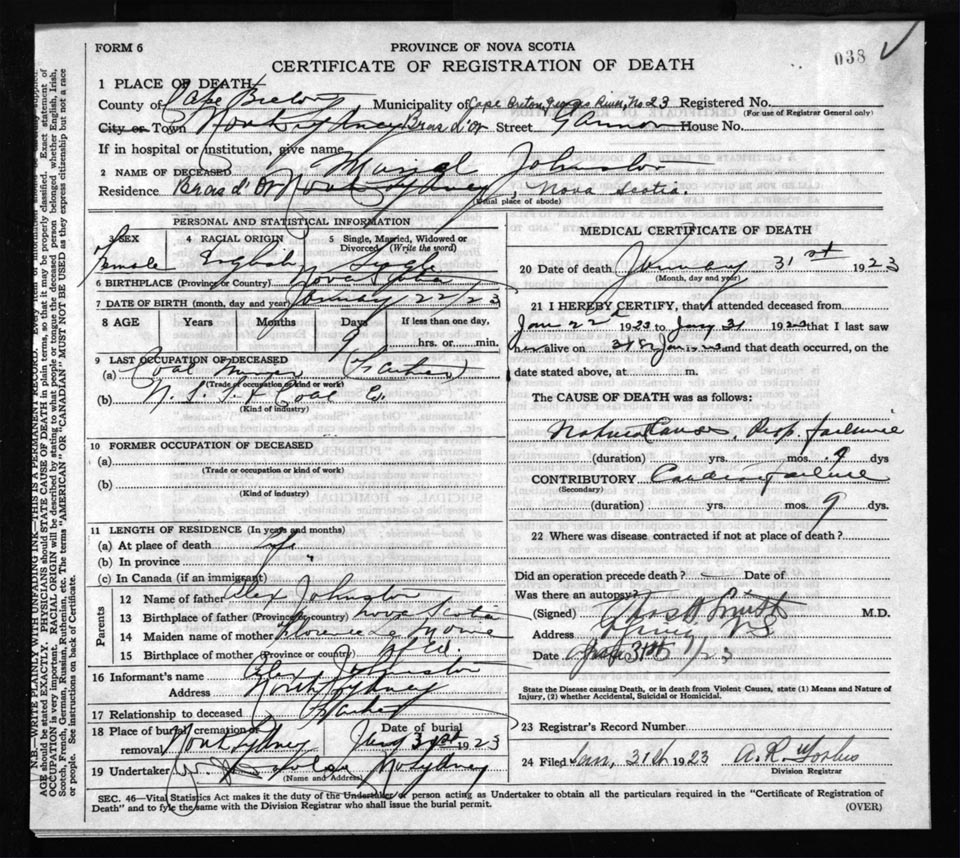 FORM 6
PROVINCE OF NOVA SCOTIA
038
CERTIFICATE OF REGISTRATION OF DEATH
1 PLACE OF DEATH
County of Cape Breton Municipality of Cape Breton, No 23 Registered No.
(For use of Registrar General only)
City or Town North Sydney Bras d'Or Street House No.
If in hospital or institution, give name
2 NAME OF DECEASED Johnston
Residence Bras d'Or North Sydney, Nova Scotia.
(Usual place of abode)
PERSONAL AND STATISTICAL INFORMATION
3 SEX 4 RACIAL ORIGIN 5 Single, Married, Widowed or Divorced (Write the word)
Female English Single
6 BIRTHPLACE (Province or Country) Nova Scotia
7 DATE OF BIRTH (month, day and year) January 22/23
8 AGE Years Months Days If less than one day,
9 hrs. or min.
9 LAST OCCUPATION OF DECEASED
(a) Coal Miner (Father)
(Trade or occupation or kind of work)
(b) N. S. S. & Coal Co.
(Kind of industry)
10 FORMER OCCUPATION OF DECEASED
(a)
(Trade or occupation or kind of work)
(b)
(Kind of industry)
11 LENGTH OF RESIDENCE (In years and months)
(a) At place of death life
(b) In province "
(c) In Canada (if an immigrant)
Parents
12 Name of father Alex Johnston
13 Birthplace of father (Province or country) Nova Scotia
14 Maiden name of mother Florence
15 Birthplace of mother (Province or country)
16 Informant's name Alex Johnston
Address North Sydney
17 Relationship to deceased Father
18 Place of burial, cremation or removal North Sydney Date of burial Jany 31st 1923
19 Undertaker No Sydney
(Name and Address)
MEDICAL CERTIFICATE OF DEATH
20 Date of death January 31st 1923
(Month, day and year)
21 I HEREBY CERTIFY, that I attended deceased from
Jan 22d 1923 to Jany 31 1923 that I last saw
her alive on 31st Jan 1923 and that death occurred, on the
date stated above, at m.
The CAUSE OF DEATH was as follows:
Natural Causes, Resp. failure
(duration) yrs. mos. 9 dys
CONTRIBUTORY Cardiac failure
(Secondary)
(duration) yrs. mos. 9 dys.
22 Where was disease contracted if not at place of death?
Did an operation precede death? — Date of
Was there an autopsy?
(Signed) M.D.
Address
Date 31st /23
State the Disease causing Death, or in death from Violent Causes, state (1) Means and Nature of
Injury, (2) whether Accidental, Suicidal or Homicidal.
23 Registrar's Record Number
24 Filed Jan, 31st 1923 A. R. Forbes
Division Registrar
SEC. 46—Vital Statistics Act makes it the duty of the Undertaker or person acting as Undertaker to obtain all the particulars required in the "Certificate of Registration of
Death" and to fyle the same with the Division Registrar who shall issue the burial permit.
(OVER)
N.B.—WRITE PLAINLY WITH UNFADING INK—THIS IS A PERMANENT RECORD. Every item of information should be
AGE should be stated EXACTLY. PHYSICIANS should STATE CAUSE OF DEATH in plain terms, so that it may be properly classified. Exact statement of
OCCUPATION is very important. RACIAL ORIGIN will be described by stating to what people or tongue the deceased person belonged whether English, Irish,
Scotch, French, German, Russian, Ruthenian, etc. The terms "AMERICAN" OR "CANADIAN" MUST NOT BE USED as they express citizenship but not a race
or people. See instructions on back of Certificate.